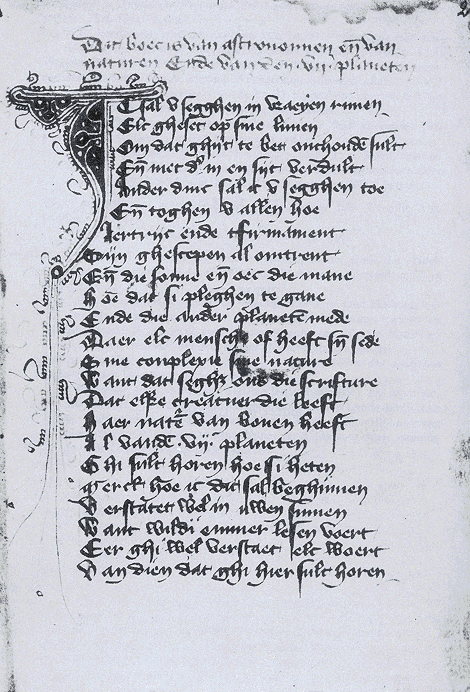 Dit boec is van astronomien en̄ van
naturen Ende van den .vij. planeten
Ic sal v segghen in waeren rimen
Elc gheset op sine linien
Om dat ghijt te bet onthoudē sult
En̄ niet dͬ in en sijt verdult
Ander dinc sal ic v segghen toe
En̄ toghen v allen hoe
Aertrijc ende tfirmament
Sijn ghescepen al omtrent
En̄ die sonne en̄ oec die mane
Hoe dat si pleghen te gane
Ende die ander planetē mede
Waer elc mensche of heeft sijn sede
Sine complexie sine nature
Want dat seghet ons die scrifture
Dat elke creatuer die leeft
Haer natē van bouen heeft
Al vandē .vij. planeten
Ghi sult horen hoe si heten
Merct hoe ic dit sal beghinnen
Verstatet wel in uwen sinnen
Want wildi emmer lesen voert
Eer ghi wel verstaet elc woert
Van dien dat ghi hier sult horen